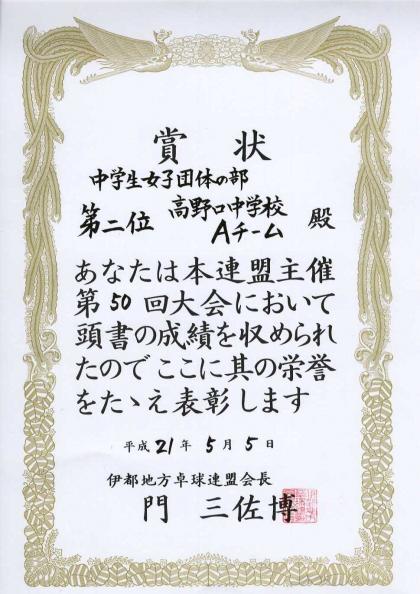 賞状
中学生女子団体の部
第二位 高野口中学校 殿
Aチーム
あなたは本連盟主催
第50回大会において
頭書の成績を収められ
たのでここに其の栄誉
をたゝえ表彰します
平成21年5月5日
伊都地方卓球連盟会長
門 三佐博